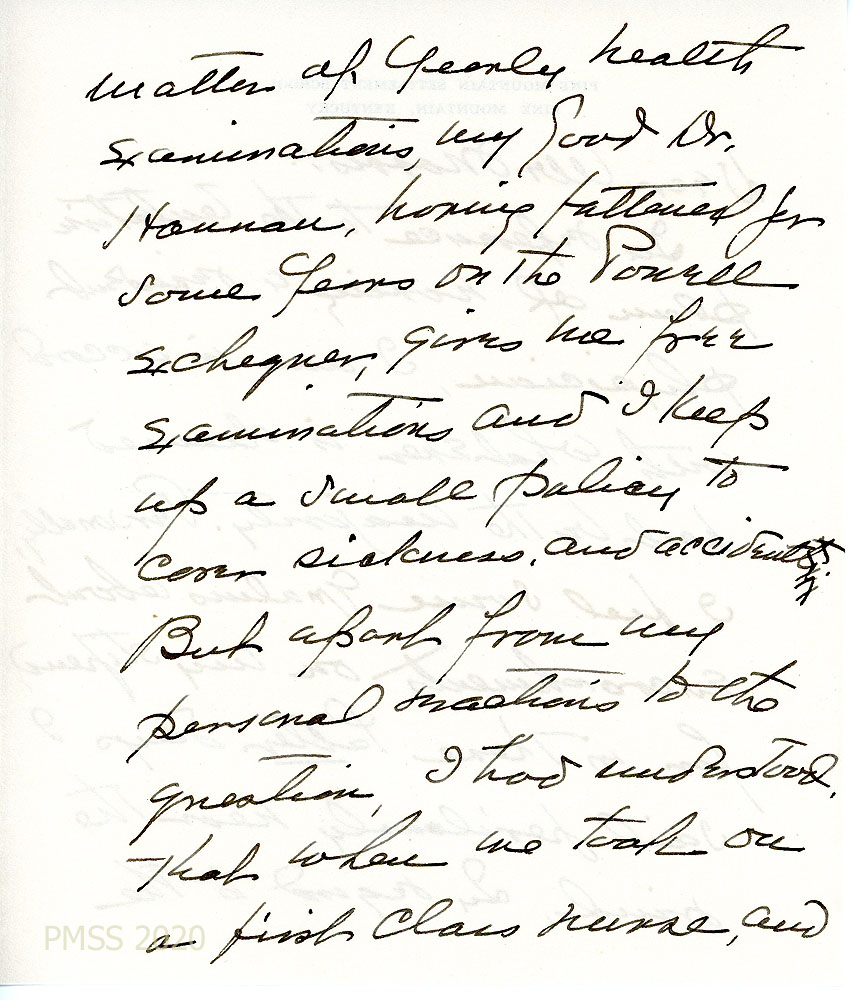 matter of yearly health
examinations, my good Dr.
Hannan, having fattened for
some years on the Powell
exchequer, gives me free
examinations and I keep
up a small policy to
cover sickness, and accident.
But apart from my
personal reactions to the
question, I had understood,
that when we took on
a first class nurse, and
PMSS 2020